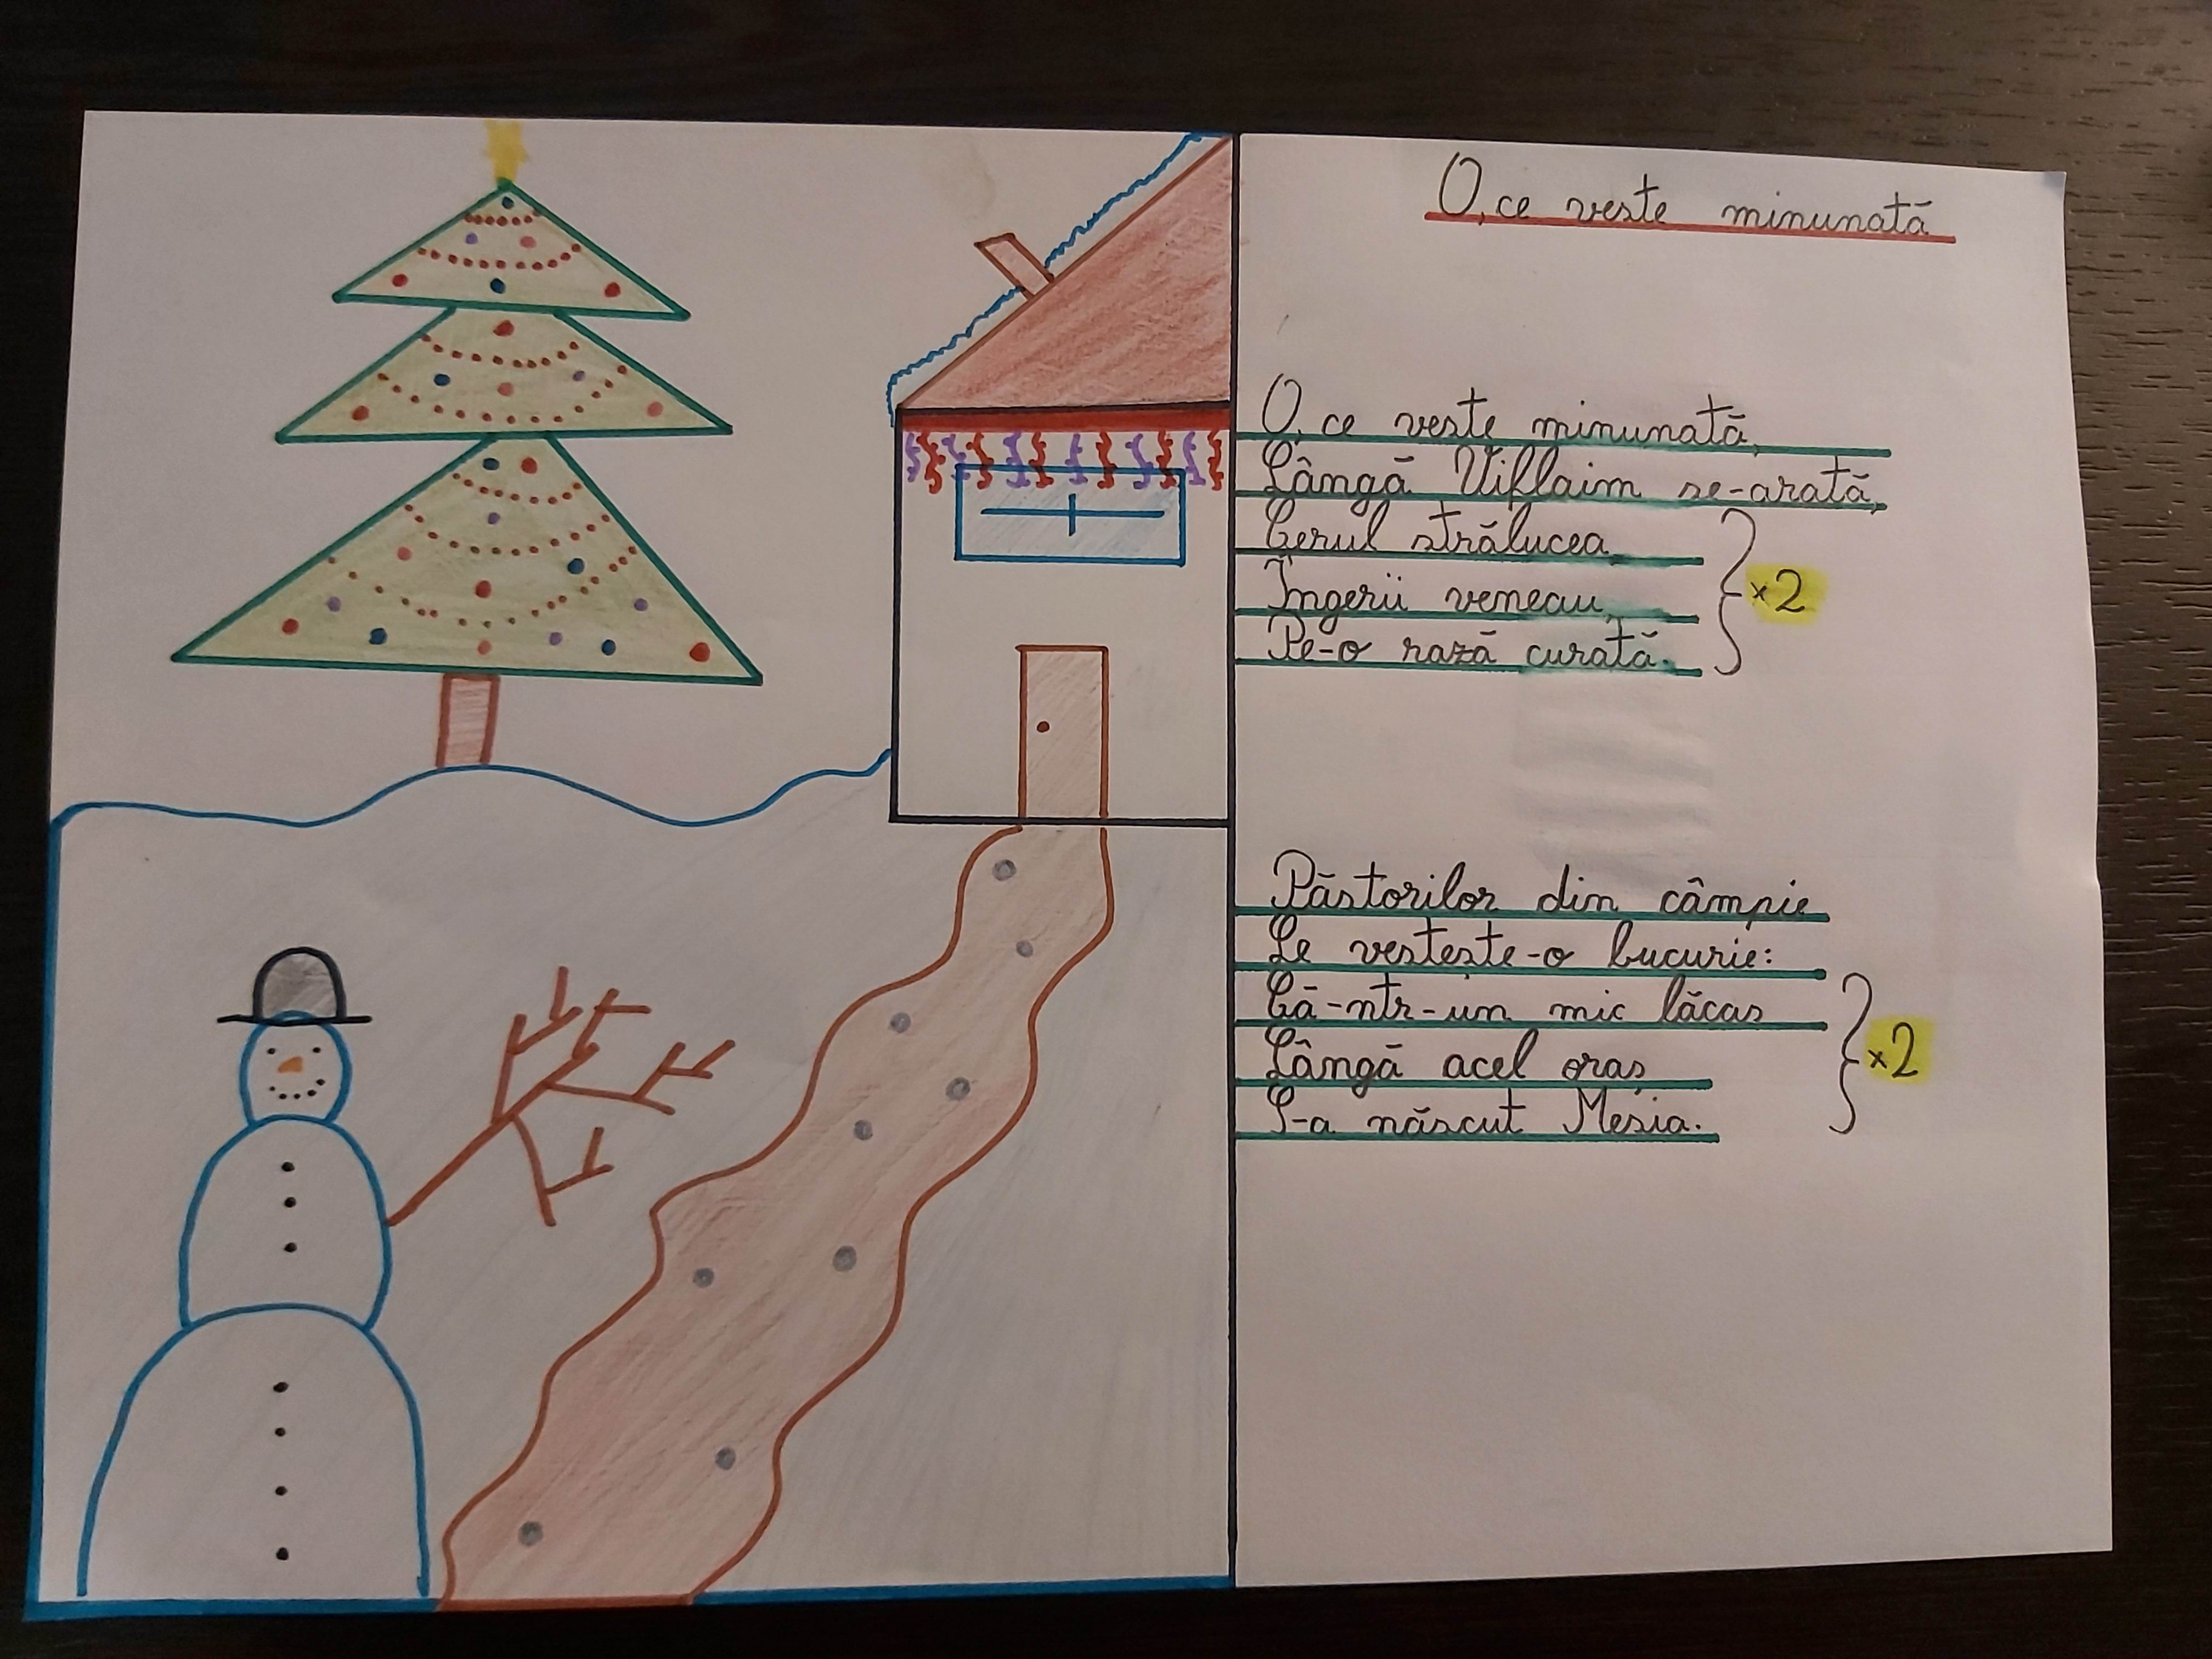 O, ce veste minunată
O, ce veste minunată,
Lângă Viflaim se-arată,
Cerul strălucea,
Îngerii veneau,
Pe-o rază curată.
x2
Păstorilor din câmpie
Le vestește-o bucurie:
Că-ntr-un mic lăcas
Lângă acel oraș
S-a născut Mesia.
x2